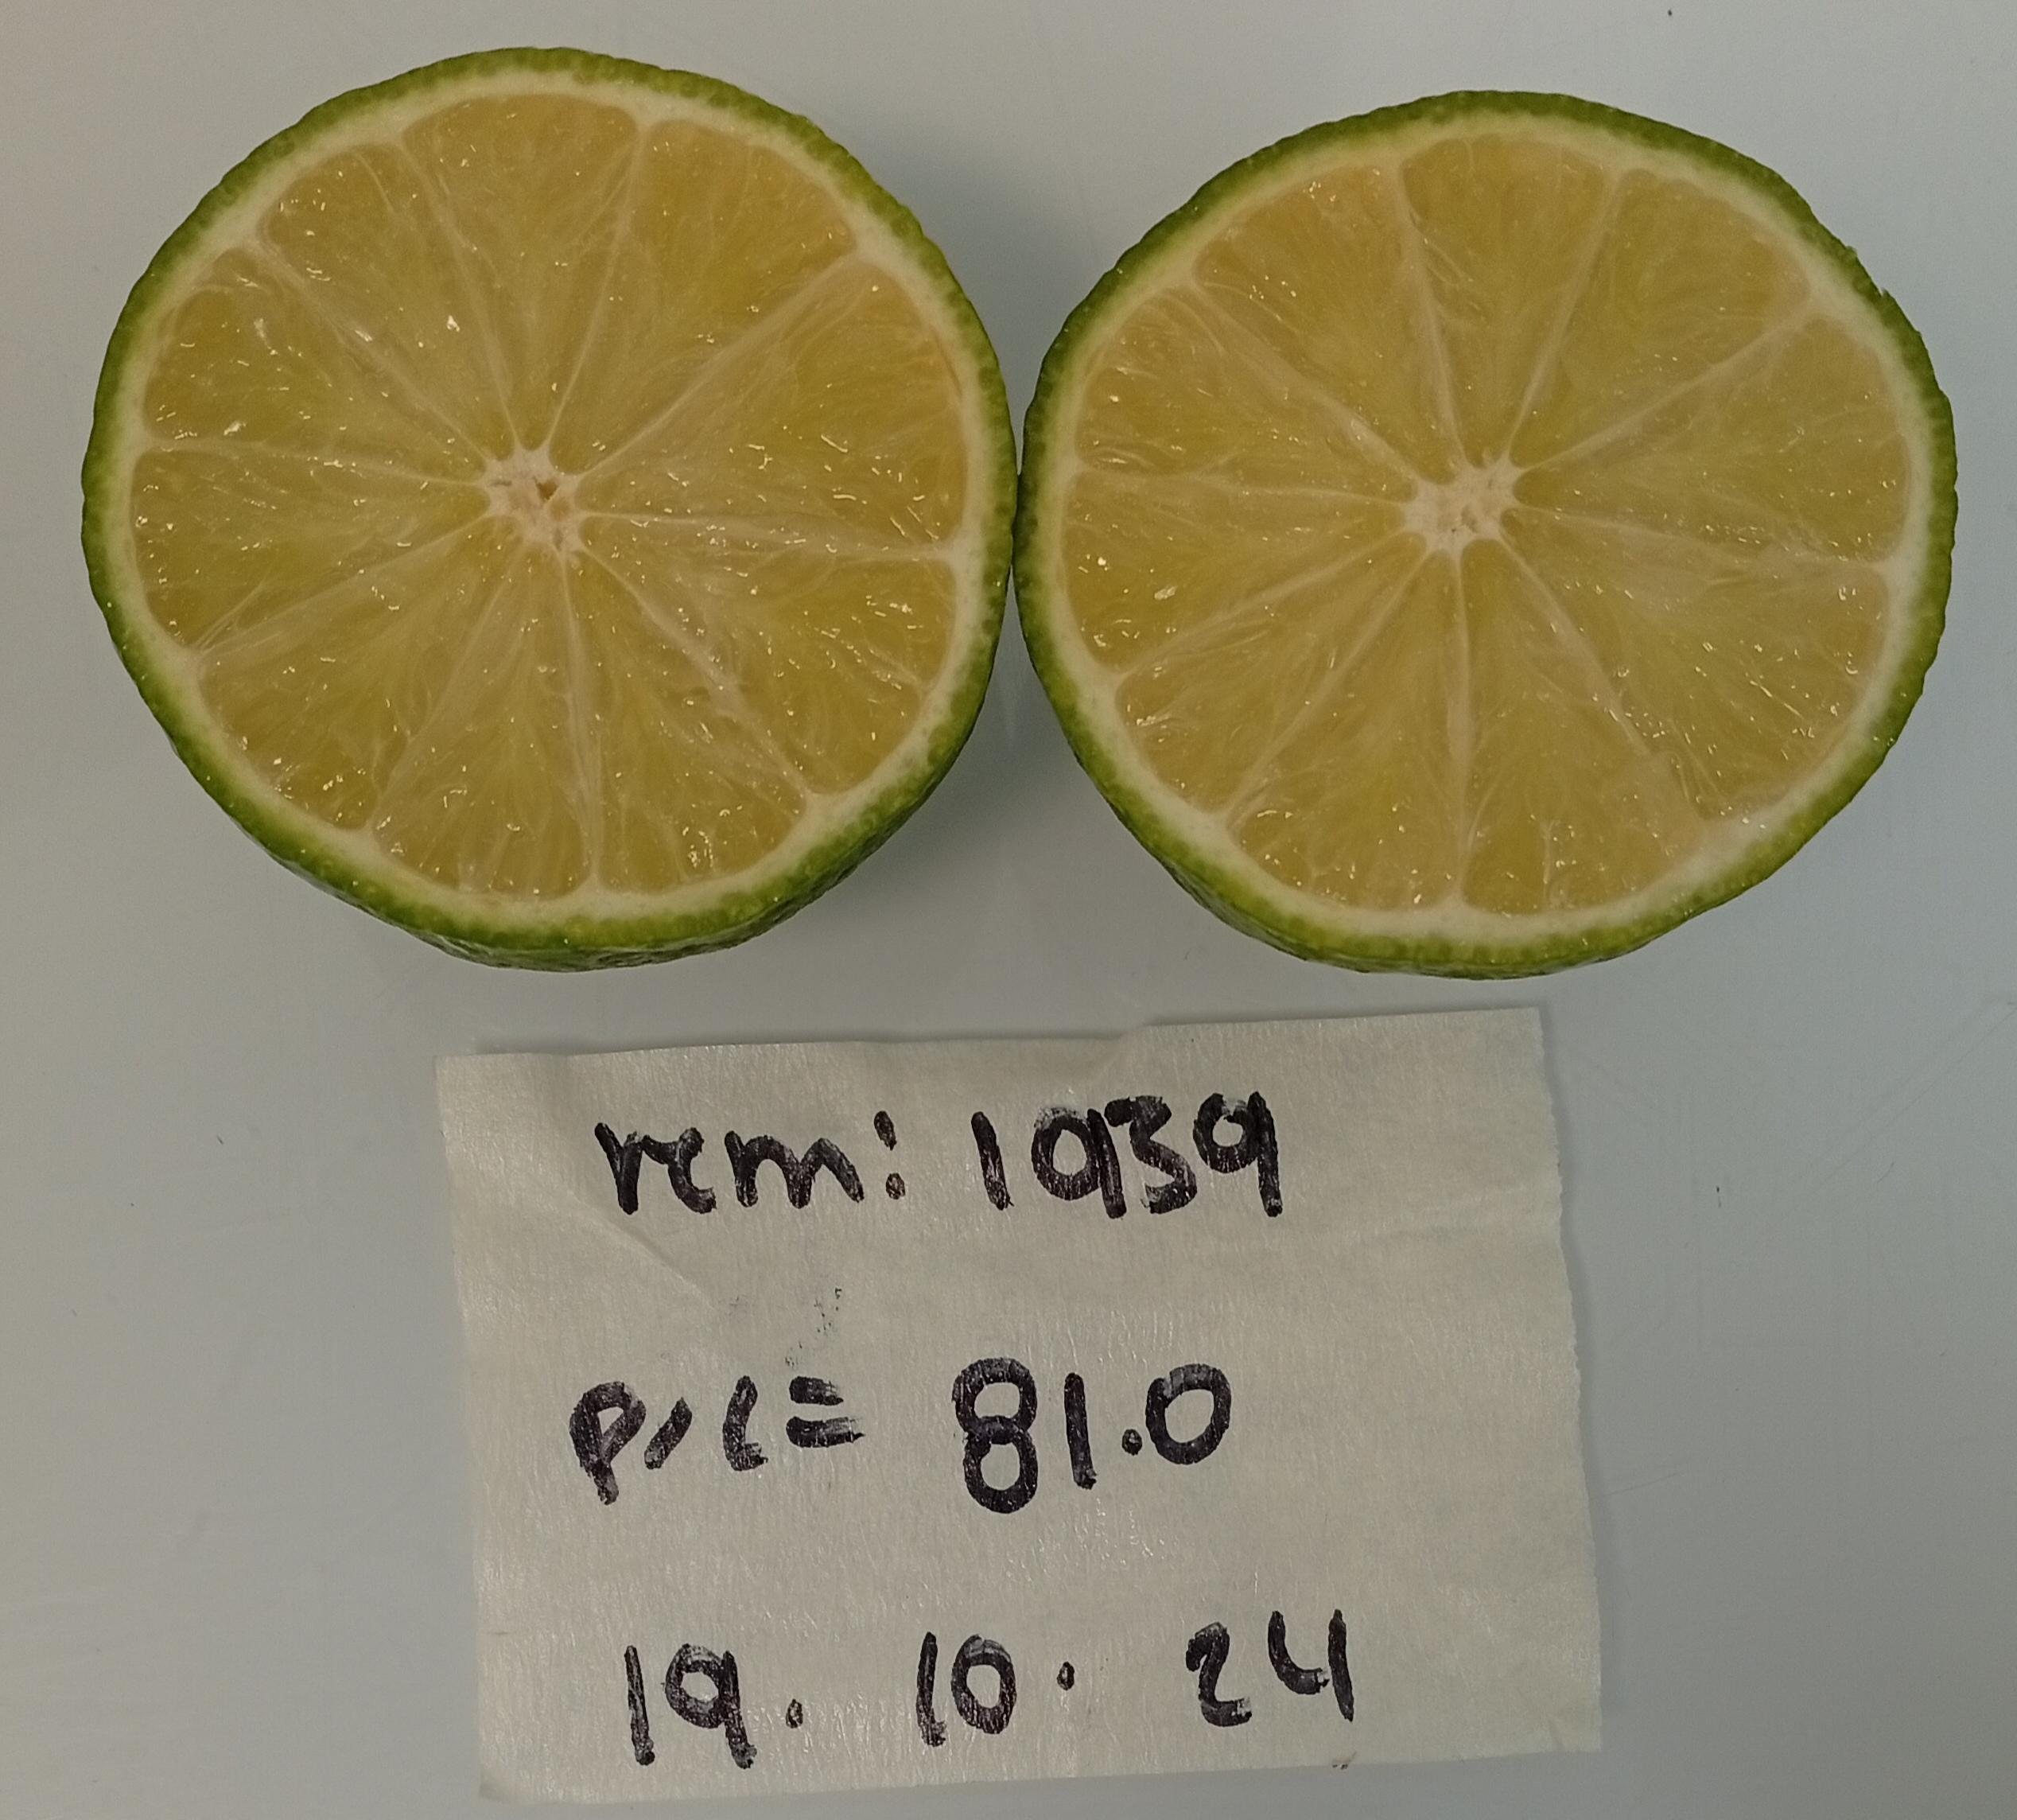 rem: 1939
P/L= 81.0
19. 10. 24